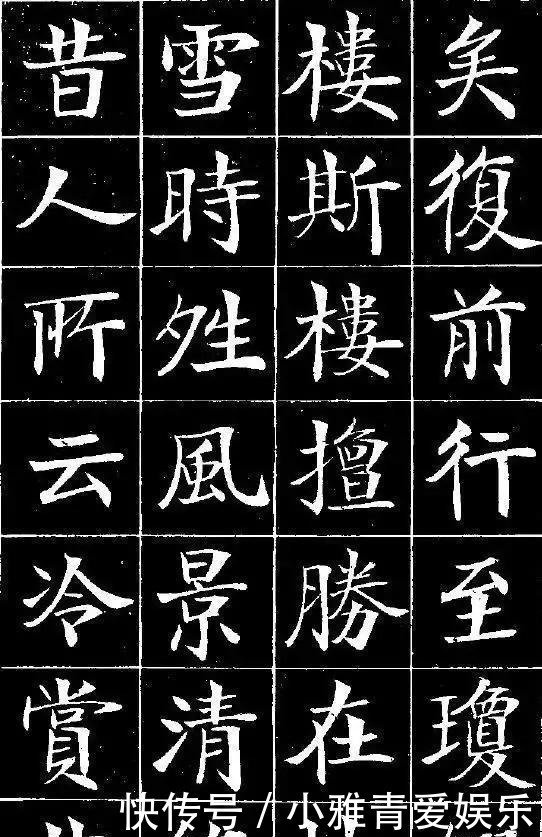 矣復前行至瓊
樓斯樓擅勝在
雪時夝風景清
昔人所云冷賞
快传号 / 小雅青爱娱乐